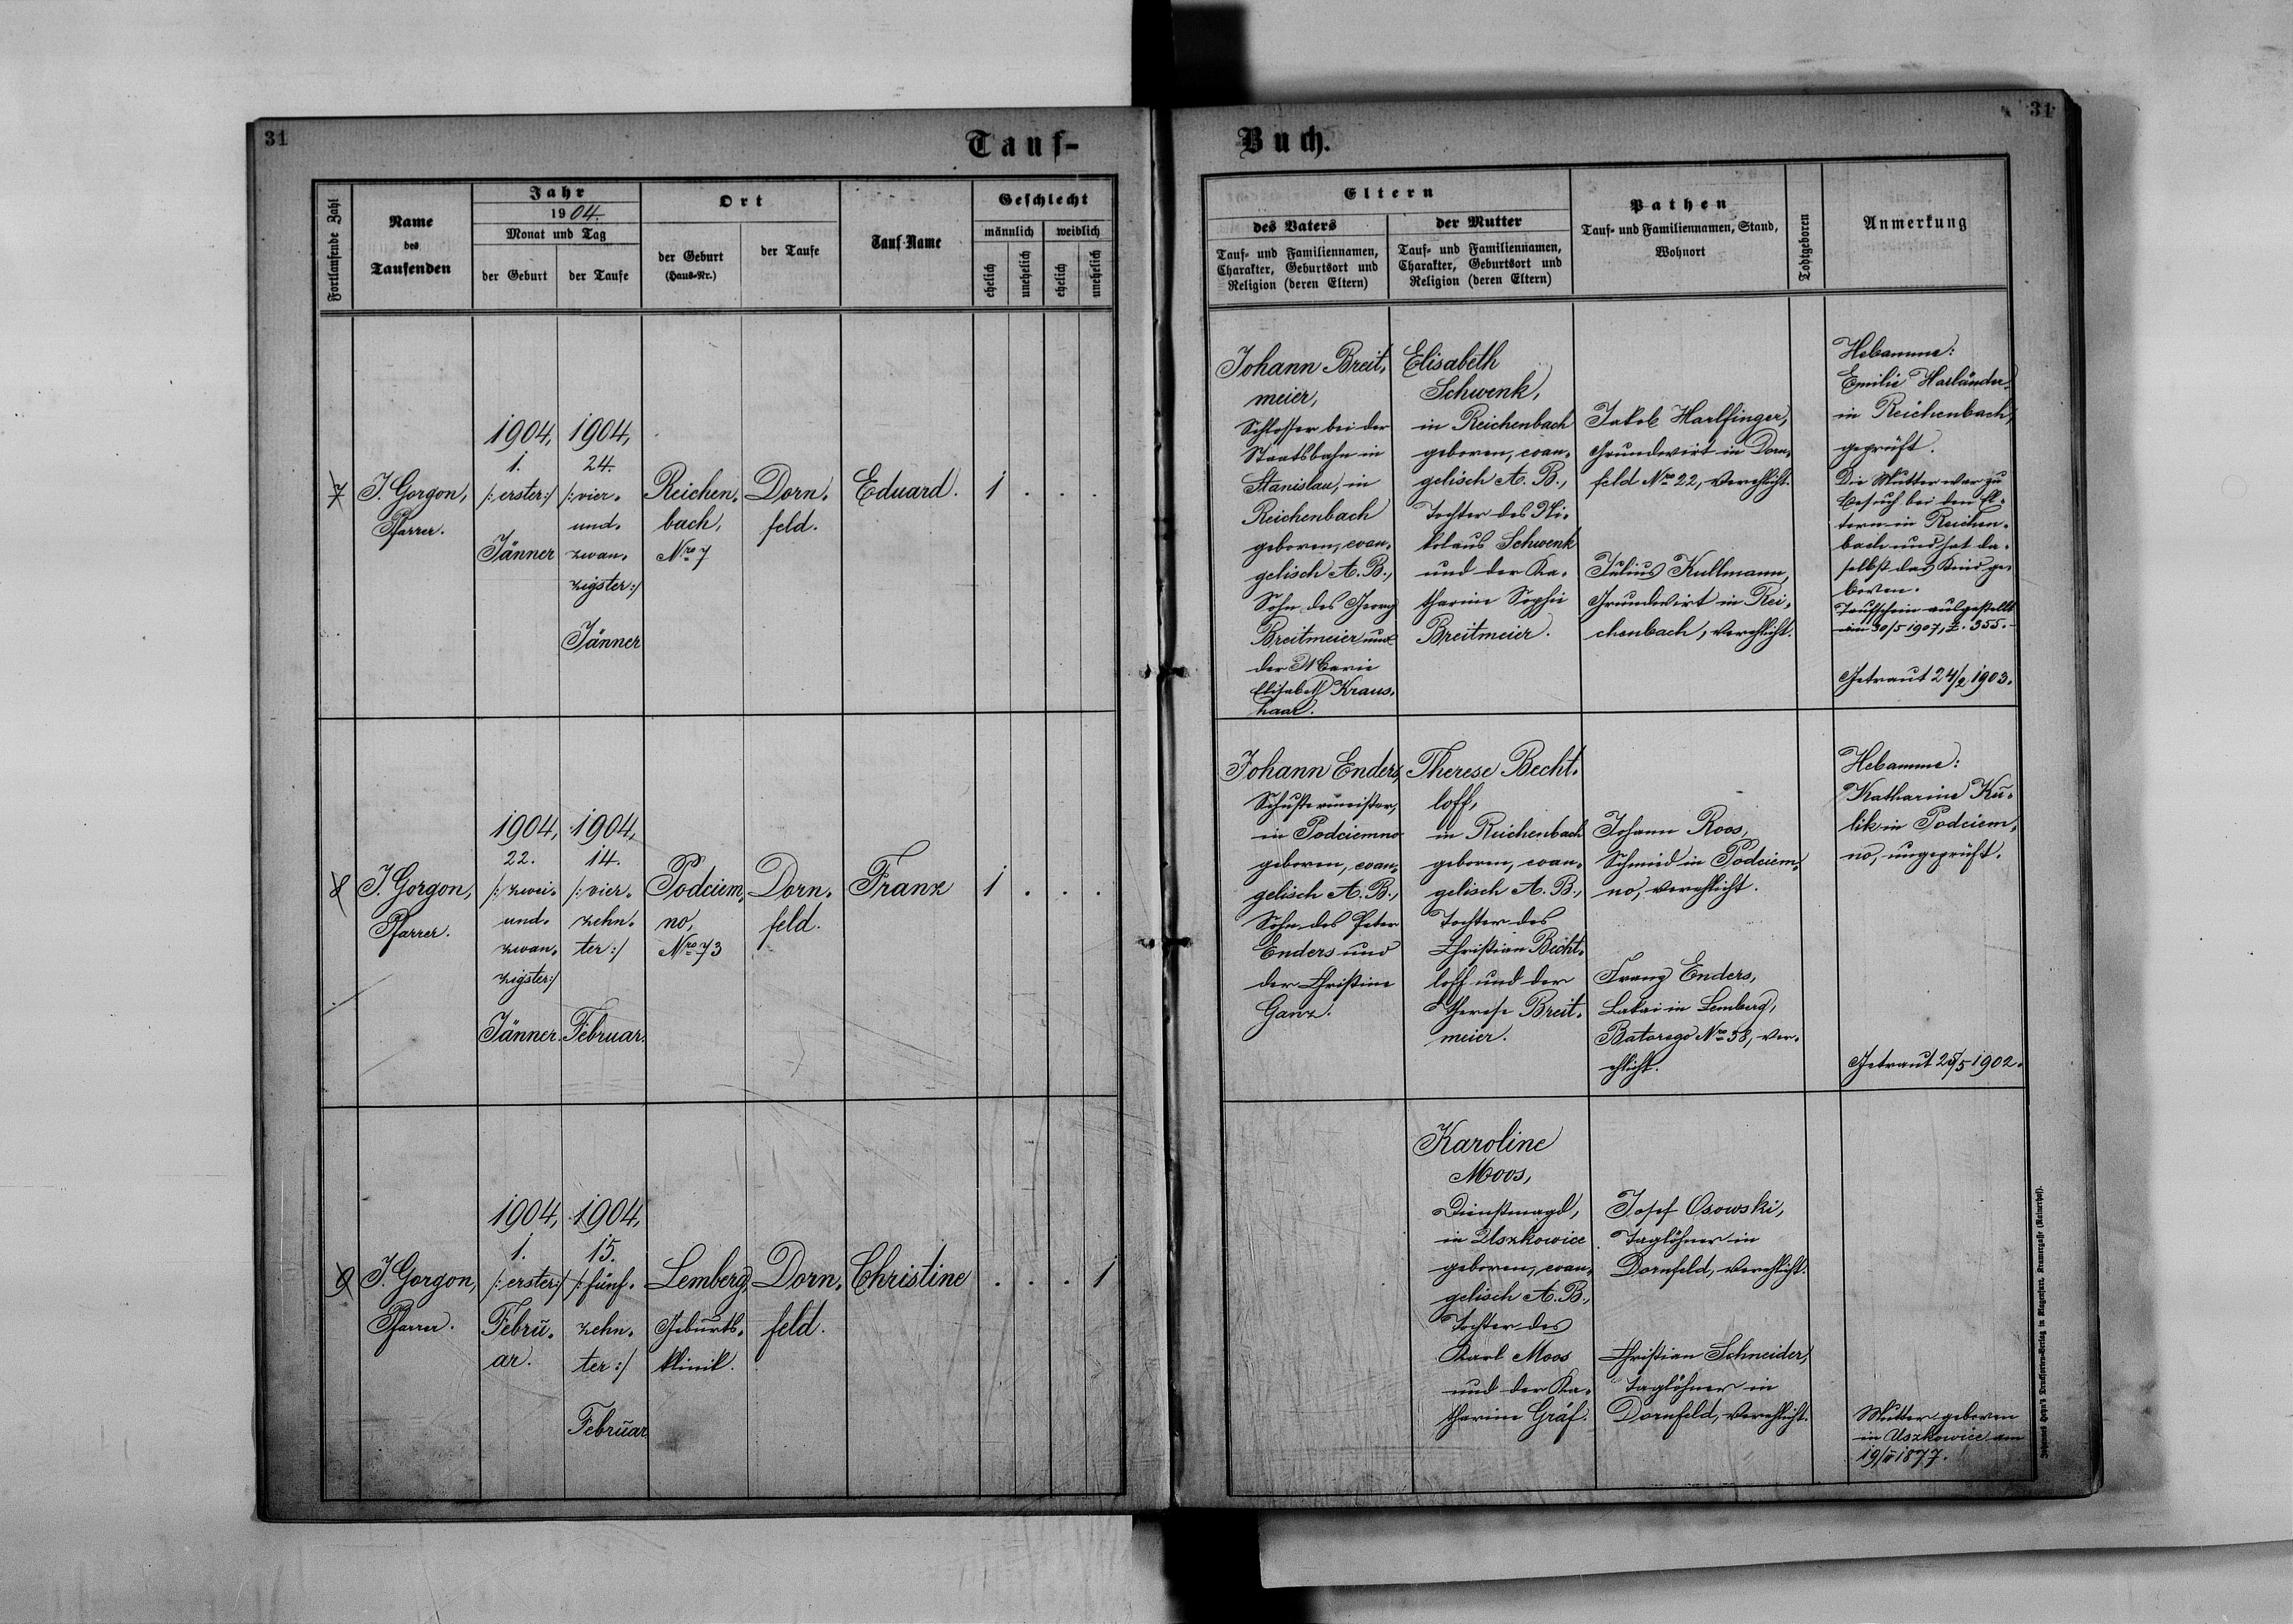 31
Tauf-
Fortlaufende Zahl
Name
des
Taufenden
Jahr
1904.
Monat und Tag
der Geburt
der Taufe
Ort
der Geburt
(Haus-Nr.)
der Taufe
Tauf-Name
Geschlecht
männlich
weiblich
ehelich
unehelich
ehelich
unehelich
7
J. Gorgon,
Pfarrer.
1904,
1.
/: erster:/
Jänner
1904,
24.
/: vier-
und-
zwan-
zigster:/
Jänner
Reichen-
bach,
Nro 7
Dorn-
feld.
Eduard.
1 . . .
8
J. Gorgon,
Pfarrer.
1904,
22.
/: zwei-
und-
zwan-
zigster:/
Jänner.
1904,
14.
/: vier-
zehn-
ter:/
Februar.
Podciem-
no,
Nro 73
Dorn-
feld.
Franz
1 . . .
9
J. Gorgon,
Pfarrer.
1904,
1.
/: erster:/
Febru-
ar.
1904,
15.
/: fünf-
zehn-
ter:/
Februar
Lemberg,
Geburts-
klinik.
Dorn-
feld.
Christine
. . . 1
31
Buch.
Eltern
des Vaters
Tauf- und Familiennamen,
Charakter, Geburtsort und
Religion (deren Eltern)
der Mutter
Tauf- und Familiennamen,
Charakter, Geburtsort und
Religion (deren Eltern)
Pathen
Tauf- und Familiennamen, Stand,
Wohnort
Todtgeboren
Anmerkung
Johann Breit-
meier,
Schlosser bei der
Staatsbahn in
Stanislau, in
Reichenbach
geboren, evan-
gelisch A. B.,
Sohn des Georg
Breitmeier und
der Marie
Elisabeth Kraus-
haar.
Elisabeth
Schwenk,
in Reichenbach
geboren, evan-
gelisch A. B.,
Tochter des Ni-
kolaus Schwenk
und der Ka-
tharine Sophie
Breitmeier.
Jakob Harlfinger,
Grundwirt in Dorn-
feld Nro 22, verehlicht.
Julius Kullmann,
Grundwirt in Rei-
chenbach, verehlicht.
Hebamme:
Emilie Harländer
in Reichenbach,
geprüft.
Die Mutter war zu
Besuch bei den El-
tern in Reichen-
bach und hat da-
selbst das Kind ge-
boren.
Taufschein ausgestellt
am 30/5 1907, Z. 355.
Getraut 24/2 1903.
Johann Enders,
Schustermeister,
in Podciemno
geboren, evan-
gelisch A. B.,
Sohn des Peter
Enders und
der Christine
Ganz.
Therese Becht-
loff,
in Reichenbach
geboren, evan-
gelisch A. B.,
Tochter des
Christian Becht-
loff und der
Therese Breit-
meier.
Johann Roos,
Schmied in Podciem-
no, verehlicht.
Franz Enders,
Lakai in Lemberg,
Batorego Nro 38, ver-
ehlicht.
Hebamme:
Katharine Ku-
lik in Podciem-
no, ungeprüft.
Getraut /5 1902.
Karoline
Moos,
Dienstmagd,
in Uszkowice
geboren, evan-
gelisch A. B.,
Tochter des
Karl Moos
und der Ka-
tharine Gräf.
Josef Osowski,
Taglöhner in
Dornfeld, verehlicht.
Christian Schneider,
Taglöhner in
Dornfeld, verehlicht.
Mutter geboren
in Uszkowice am
19/ 1877.